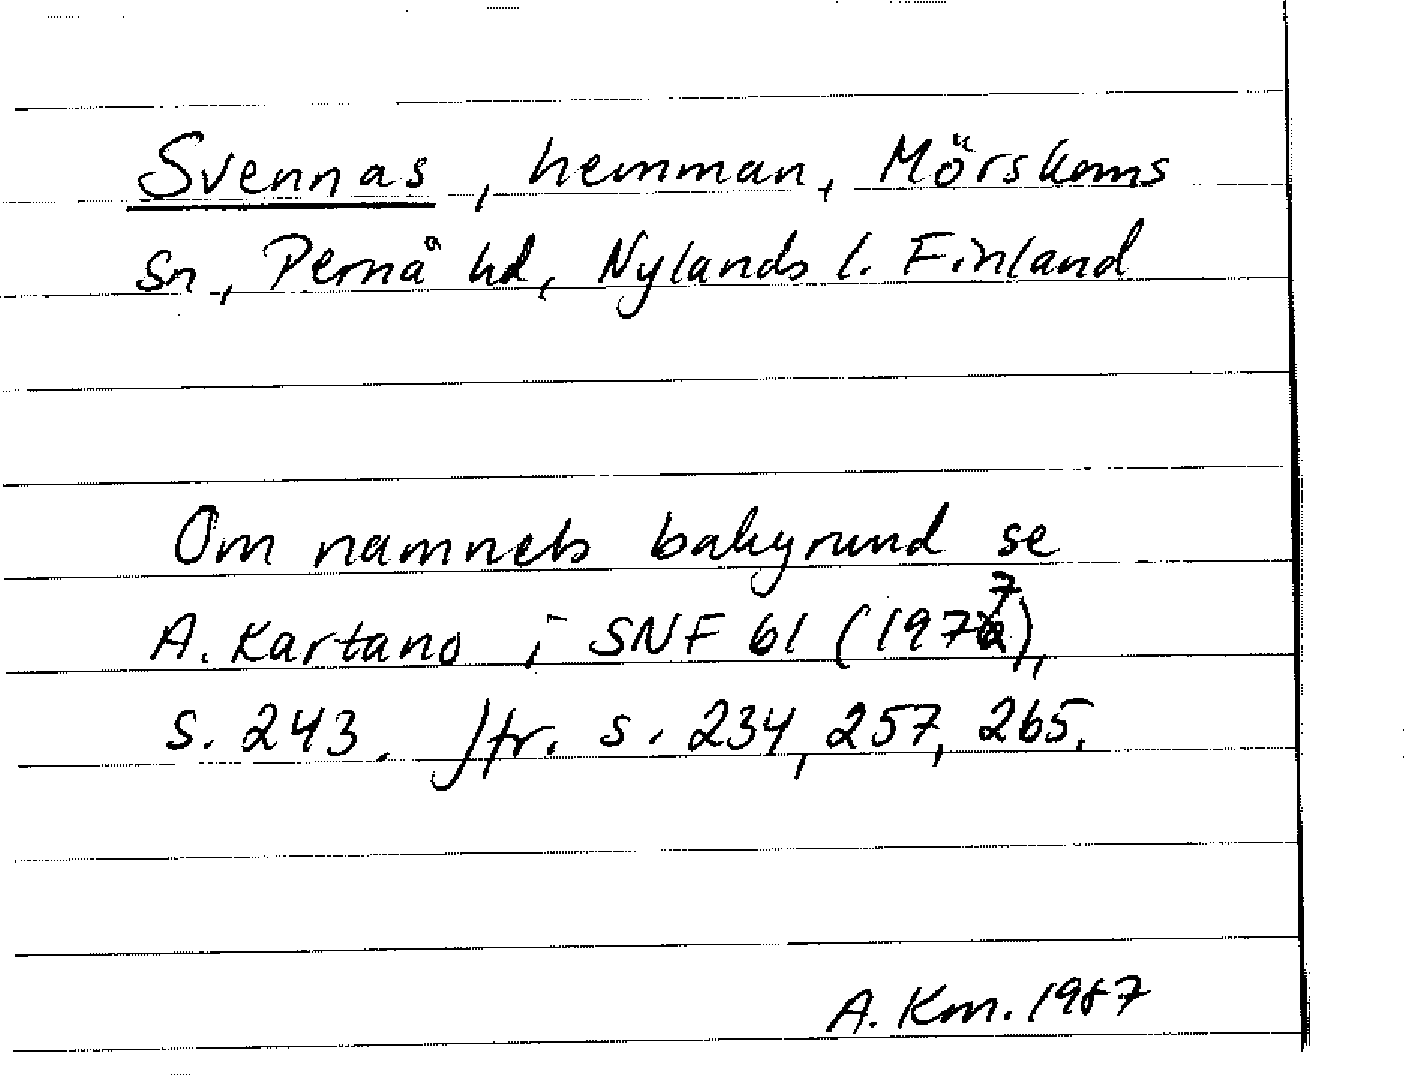 Svennas, hemman, Mörskoms
sn, Pernå hd, Nylands l. Finland
Om namnets bakgrund se
A. Kartano i SNF 61 (1977),
s. 243. Jfr. s. 234, 257, 265.
A. Km. 1987